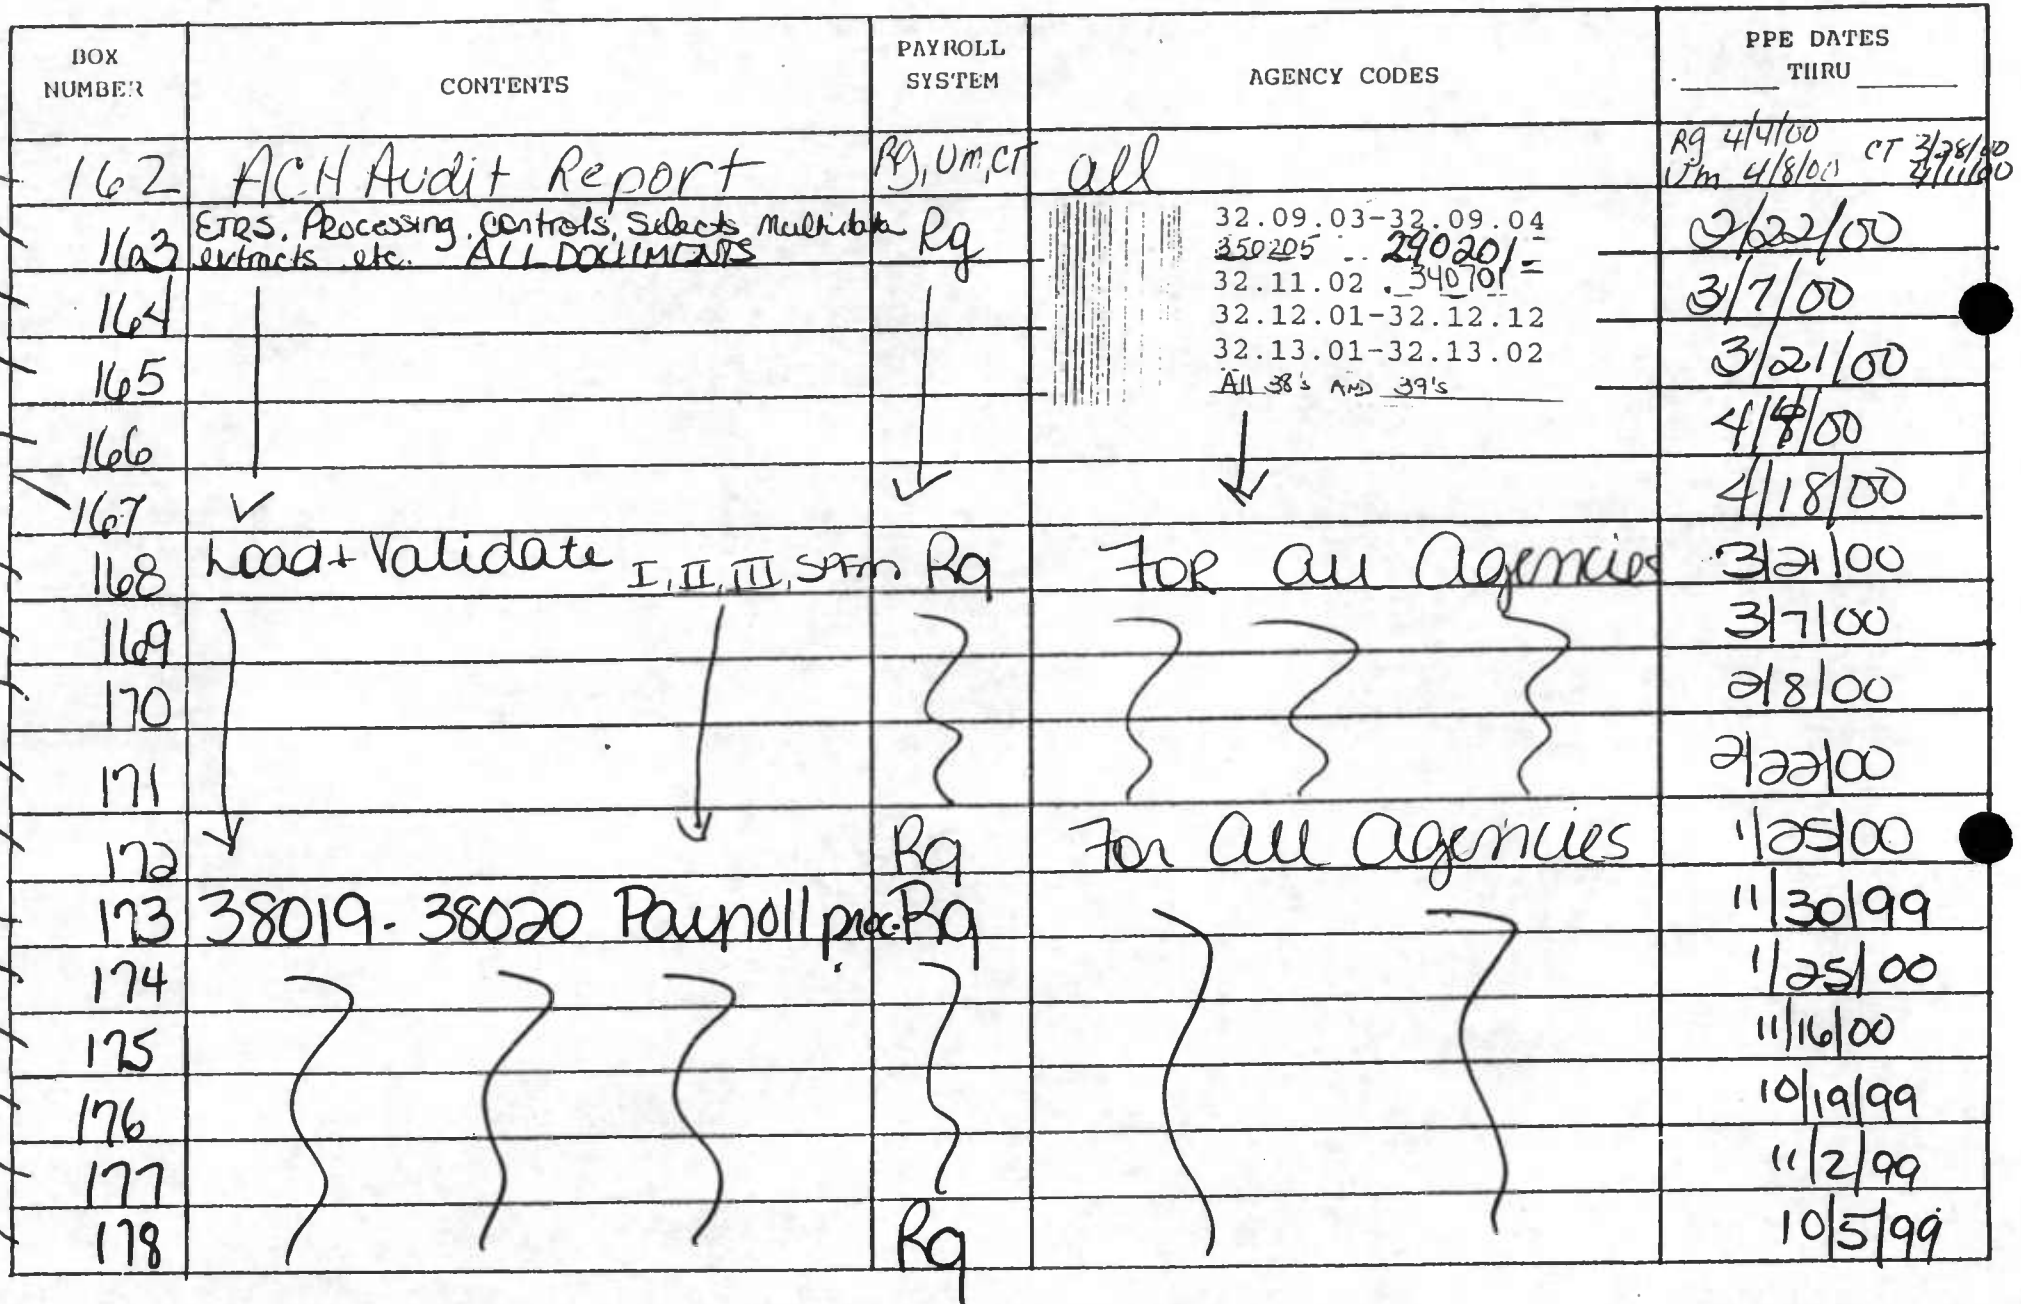 BOX NUMBER CONTENTS PAYROLL SYSTEM AGENCY CODES PPE DATES ____ THRU ____
162 ACH Audit Report Rg, Um, CT all Rg 4/4/00 Um 4/8/00 CT 3/28/00 4/11/00
163 ETRS, Processing, Controls, Selects, Multidata extracts etc. ALL DOCUMENTS Rg 32.09.03-32.09.04 2/22/00
350205 290201
164 32.11.02 340701 3/7/00
32.12.01-32.12.12
165 32.13.01-32.13.02 3/21/00
All 38's AND 39's
166 4/4/00
167 4/18/00
168 Load + Validate I, II, III, SPFm Rg FOR all Agencies 3/21/00
169 3/7/00
170 2/8/00
171 2/22/00
172 Rg For all agencies 1/25/00
173 38019 - 38020 Payroll proc. Rg 11/30/99
174 1/25/00
175 11/16/00
176 10/19/99
177 11/2/99
178 Rg 10/5/99